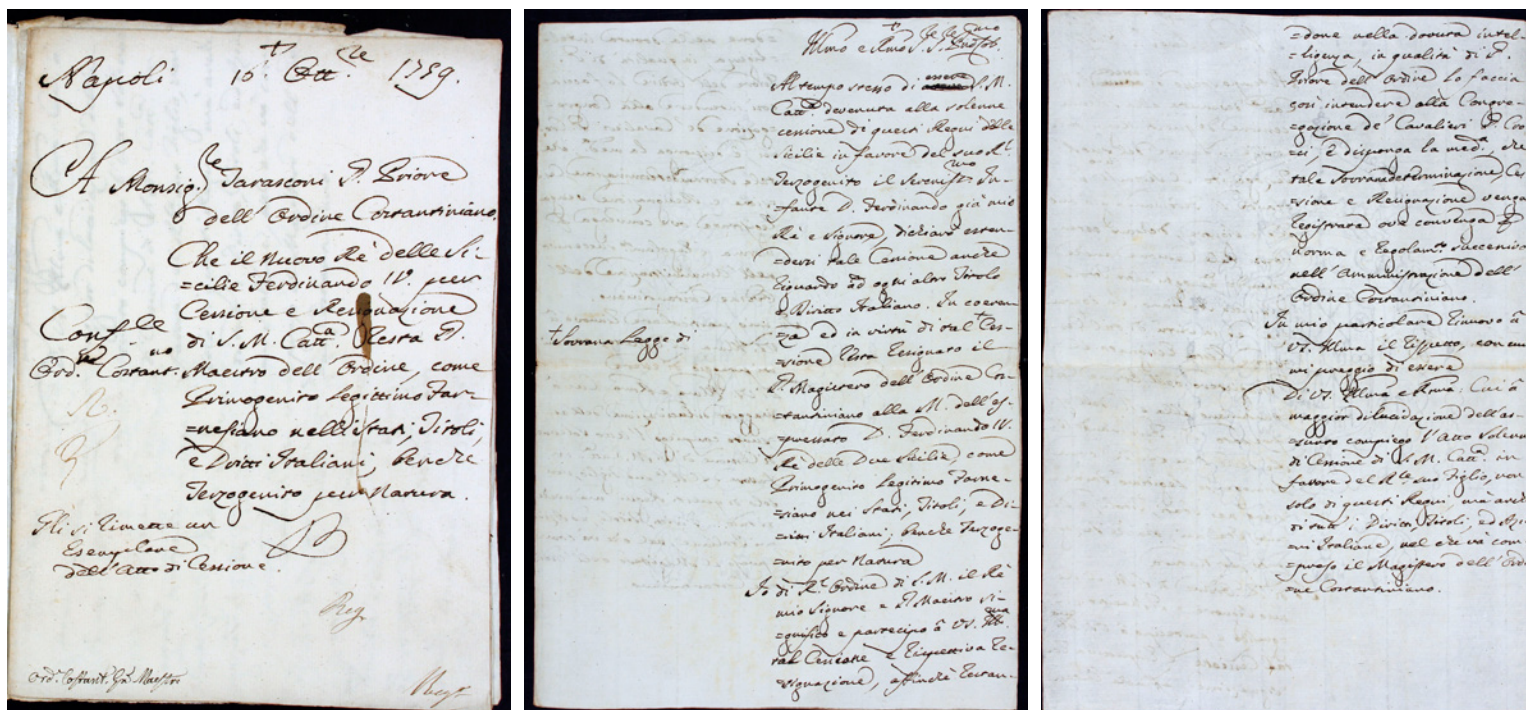 Napoli 16. Ott.re 1759.
A Monsig.re Tarasconi P. Priore
dell' Ordine Costantiniano.
Che il nuovo Rè delle Si-
=cilie Ferdinando IV. per
Cessione e Resignazione
di S. M. Catt.a Resta P.
Maestro dell' Ordine, come
Primogenito legittimo Far-
=nesiano nelli Stati, Titoli,
e Dritti Italiani, benchè
Terzogenito per Natura.
Conf.le
Ord.ne Costant.no
Gli si rimette un
Esemplare
dell' Atto di Cessione.
Reg.
Ord.e Costant. Gn. Maestri
Illmo e Rmo S.
Al tempo stesso di essere S. M.
Catt.a devenuta alla solenne
cessione di questi Regni delle
Sicilie in favore del suo R.l
Terzogenito il Sereniss.mo In-
=fante D. Ferdinando già mio
Rè e Signore, dichiarò esten-
=dersi tale Cessione anche
riguardo ad ogni altro Titolo
e Diritto Italiano. In coeren-
=za ed in virtù di tal + Ces-
+ Sovrana Legge di
=sione resta resignato il
P. Magistero dell' Ordine Cos-
=tantiniano alla M. dell' es-
=pressato D. Ferdinando IV.
Rè delle Due Sicilie, come
Primogenito Legitimo Farne-
=siano nei Stati, Titoli, e Di-
=ritti Italiani, benchè Terzoge-
=nito per Natura
Io di R.l Ordine di S. M. il Rè
mio Signore e P. Maestro si-
=gnifico e partecipo à VS. Ill.ma
tal Cessione e rispettiva re-
=signazione, affinchè restan-
=done nella dovuta intel-
=ligenza, in qualità di P.
Priore dell' Ordine lo faccia
così intendere alla Congre-
=gazione de' Cavalieri P. Cro-
=ci, e disponga la med.a che
tale Sovrana determinazione, Ces-
=sione e Resignazione venga
registrata ove convenga P
norma e regolam.to successivo
nell' Amministrazione dell'
Ordine Costantiniano.
In mio particolare rinuovo à
VS. Illma il rispetto, con cui
mi preggio di essere
Di VS. Illma e Rma. Cui à
maggior dilucidazione dell' as-
=sunto compiego l' Atto Solenne
di Cessione di S. M. Catt.a in
favore del R.le suo Figlio, non
solo di questi Regni, mà anche
di tutti i Diritti, Titoli, ed Azio-
=ni Italiane, nel che và com-
=preso il Magistero dell' Ordi-
=ne Costantiniano.